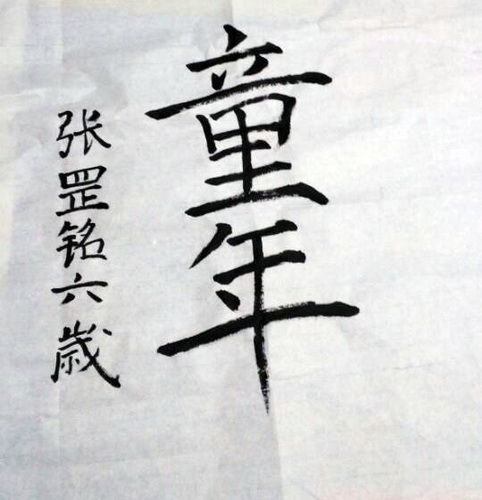 童年
张罡铭六歲